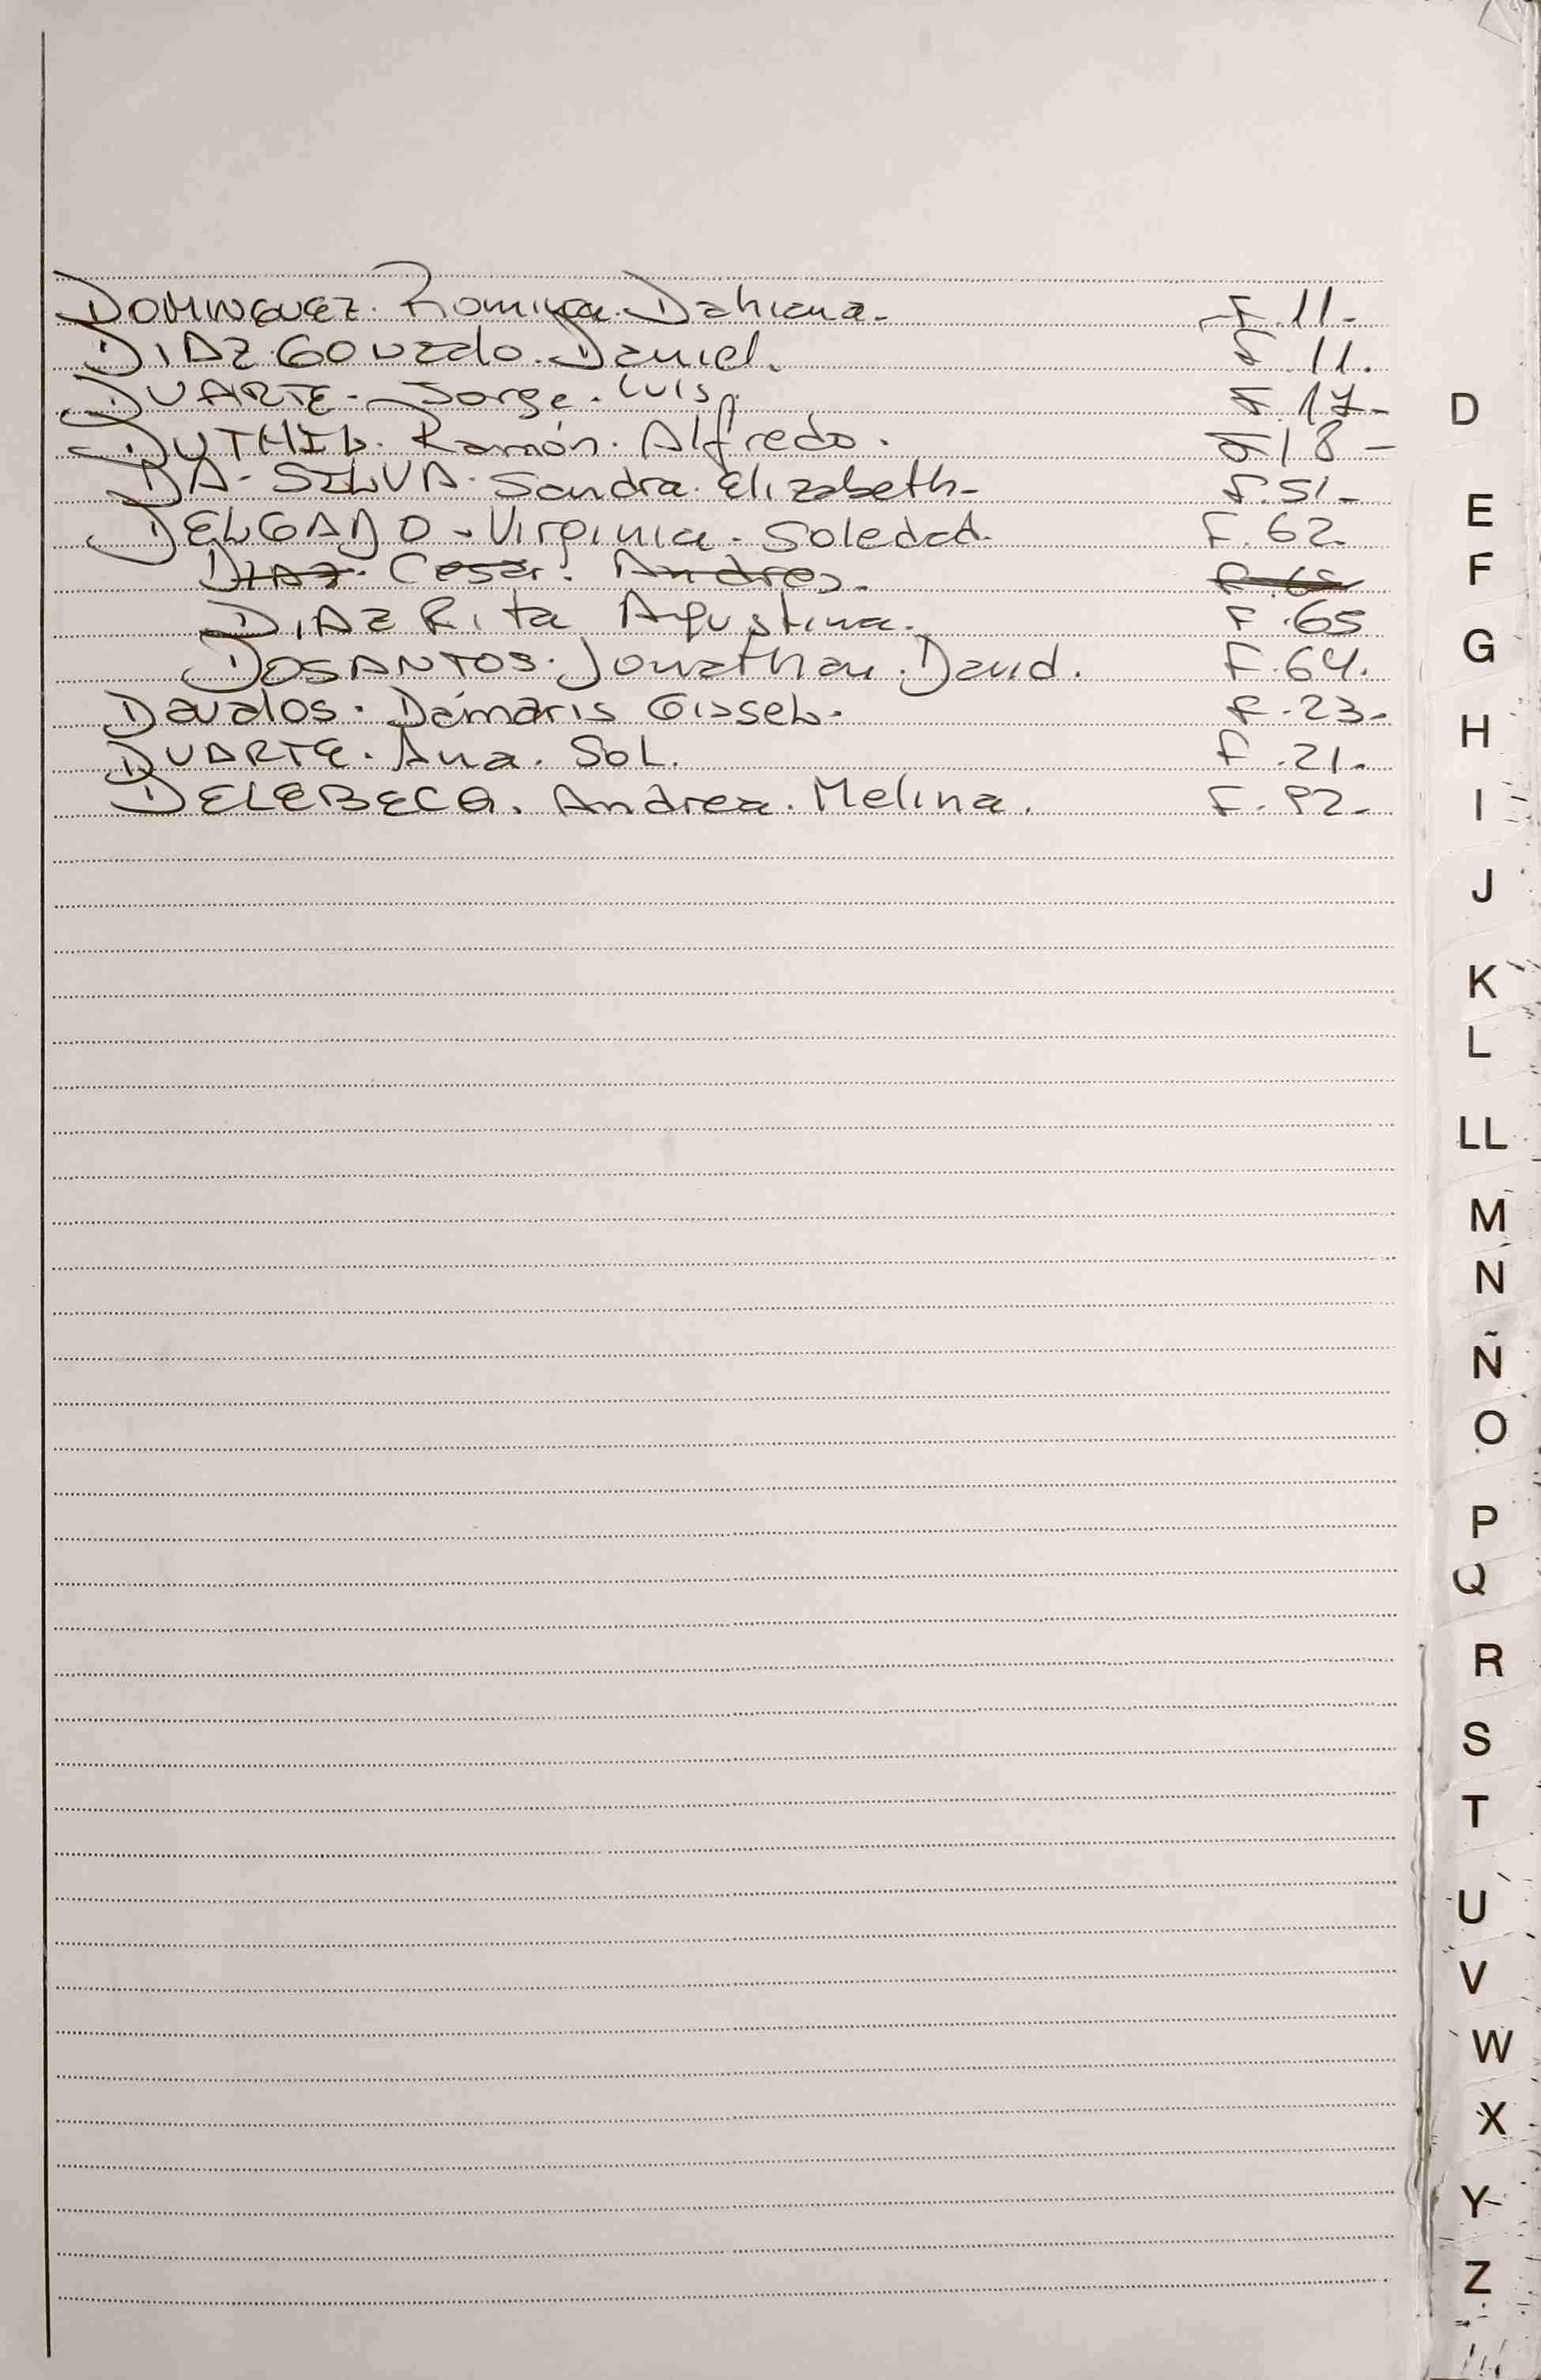 DOMINGUEZ. Romina. Dahiana. F. 11.
DIAZ. GONZalo. Daniel. F. 11.
DUARTE. Jorge. Luis. F. 17
DUTHIL. Ramón. Alfredo. F 18
DA-SILVA. Sandra. Elizabeth F. 51
DELGADO. Virginia. Soledad. F. 62.
DIAZ. Cesar. Andres.
DIAZ Rita Agustina. F. 65
DOSANTOS. Jonathan. David. F. 64.
Davalos. Dámaris GisseL. F. 23.
DUARTE. Ana. SoL. F. 21.
DELEBECQ. Andrea. Melina. F.
D
E
F
G
H
I
J
K
L
LL
M
N
Ñ
O
P
Q
R
S
T
U
V
W
X
Y
Z